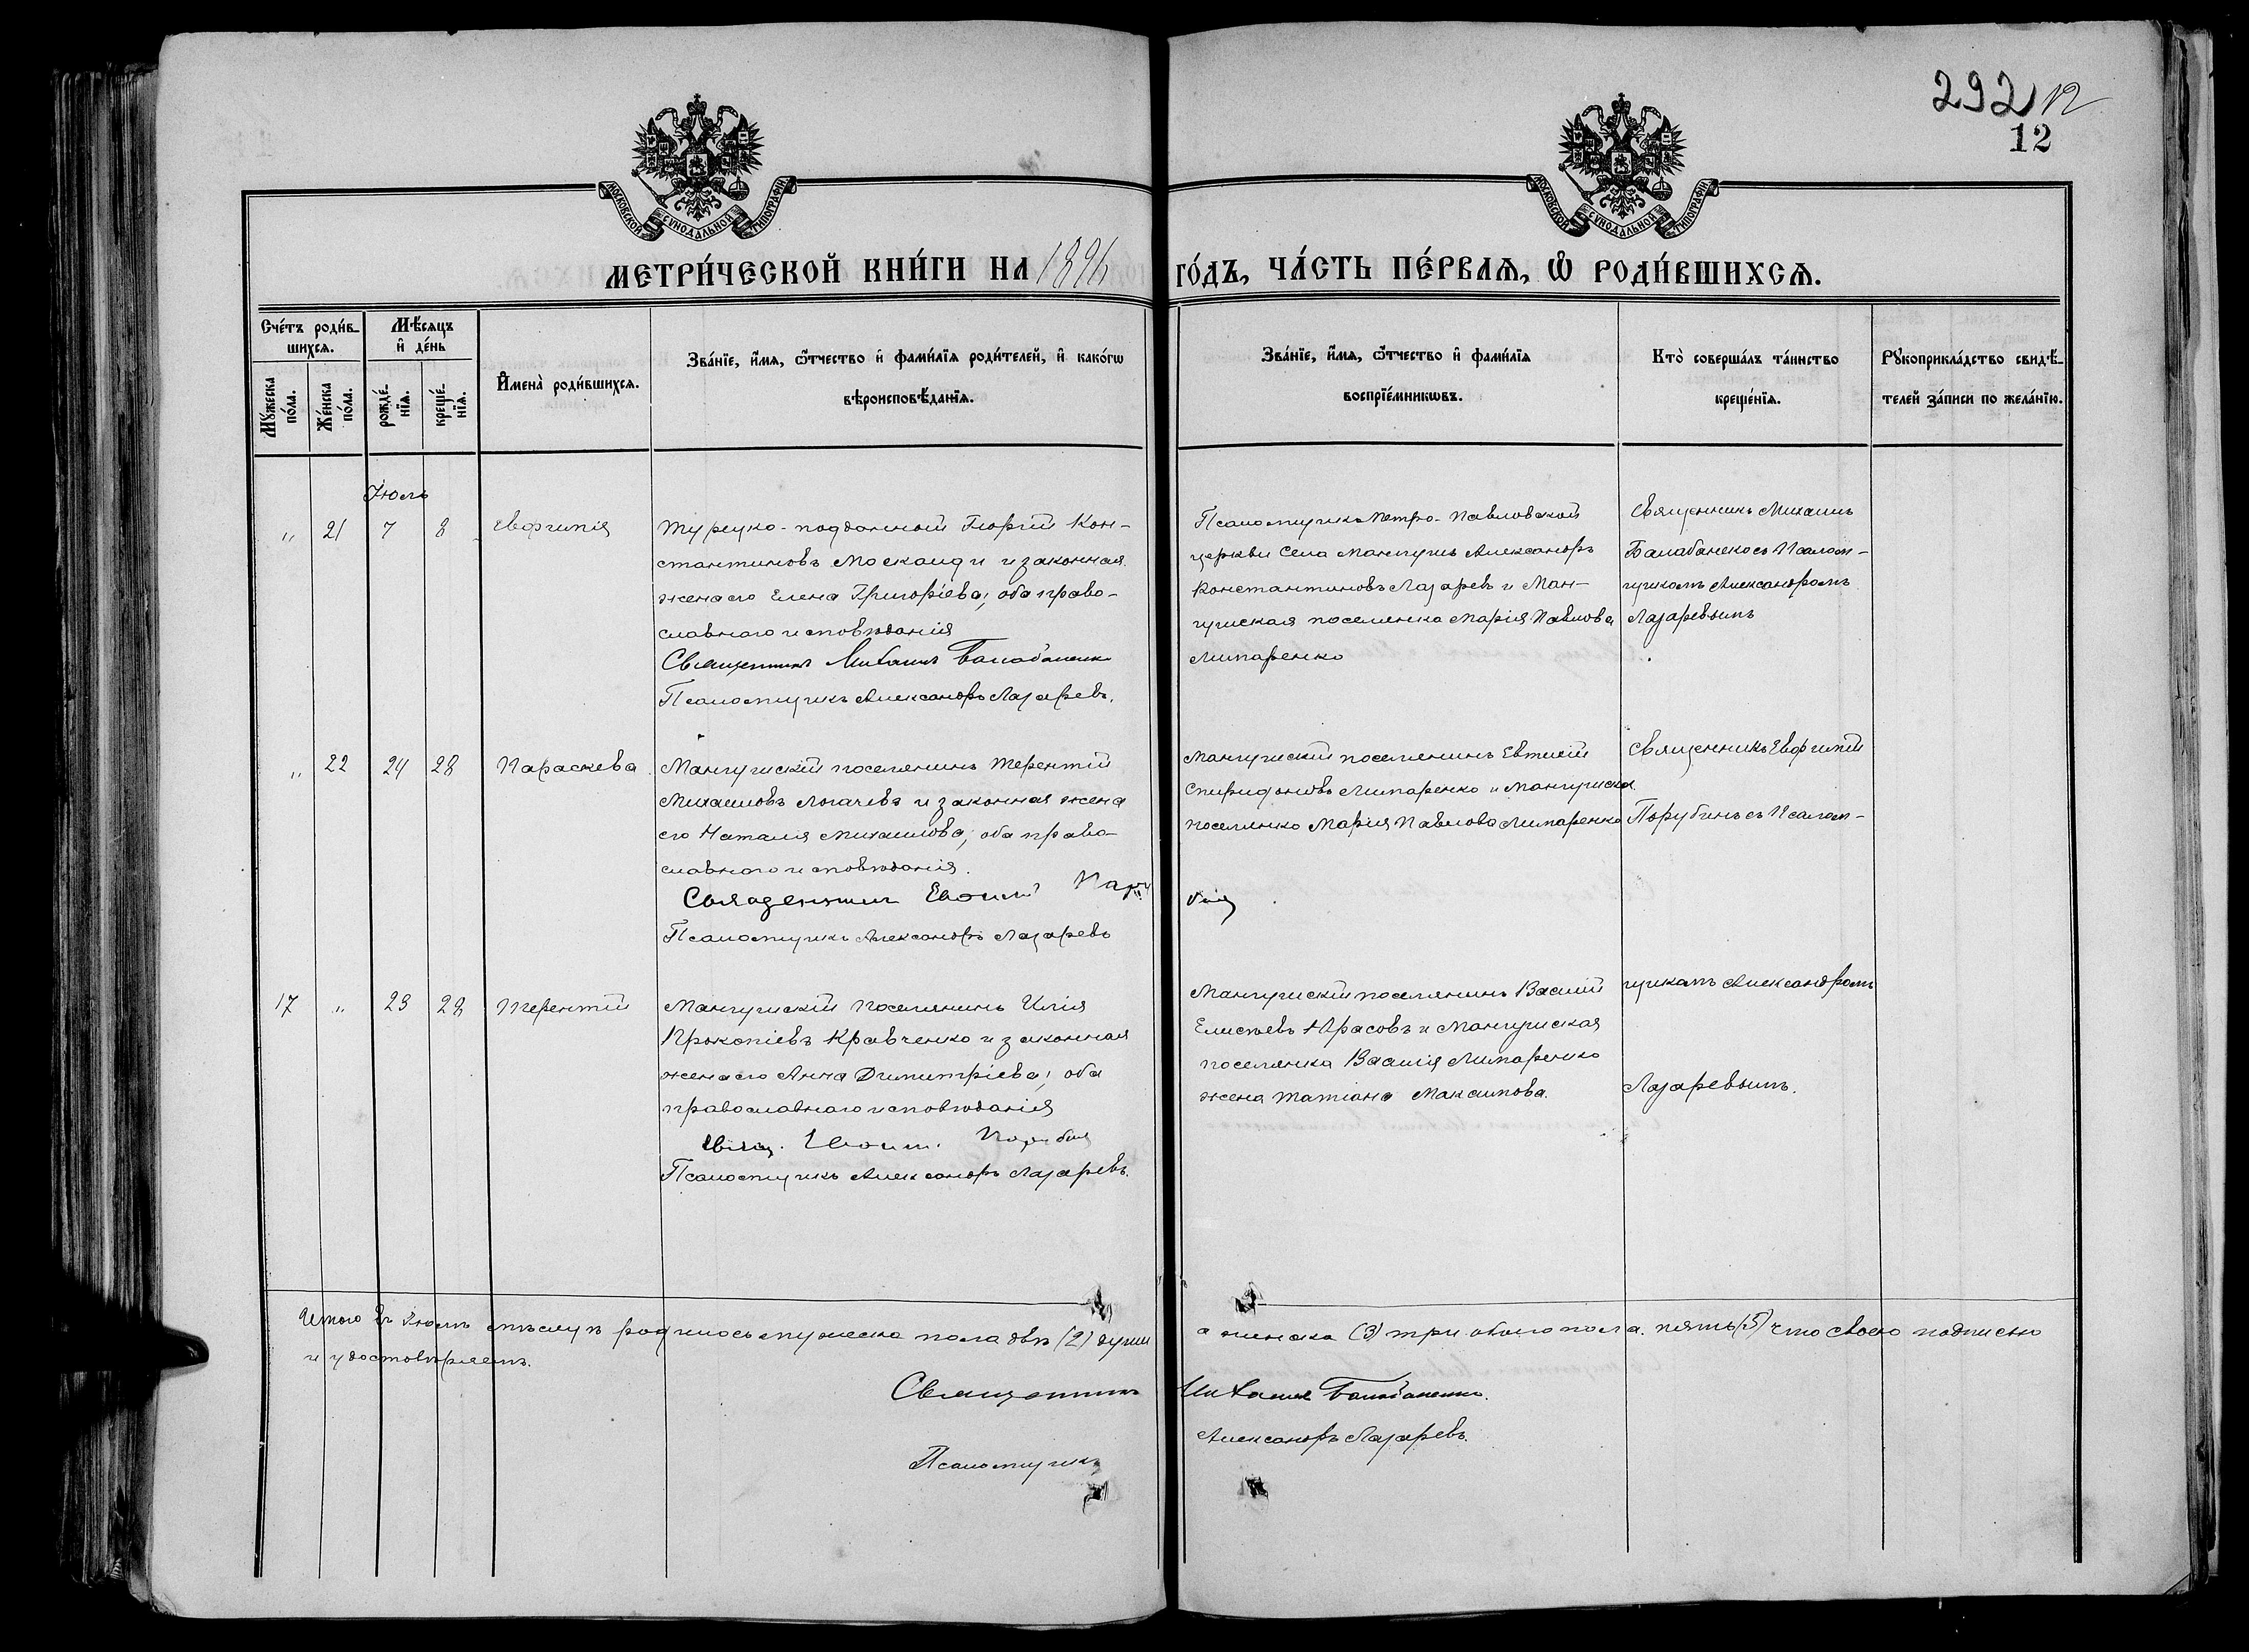 292 12
12
МОСКОВСКОЙ СѴНОДАЛЬНОЙ ТИПОГРАФІИ.
МОСКОВСКОЙ СѴНОДАЛЬНОЙ ТИПОГРАФІИ.
МЕТРИ́ЧЕСКОЙ КНИ́ГИ НА 1896 ГО́ДЪ, ЧА́СТЬ ПЕ́РВАЯ, Ѡ РОДИ́ВШИХСѦ.
Сче́тъ роди́в-
шихсѧ.
Мѣ́сѧцъ
и де́нь
Мꙋ́жеска
по́ла.
Же́нска
по́ла.
рожде́-
нїѧ.
креще́-
нїѧ.
Имена̀ роди́вшихсѧ.
Зва́нїе, и́мѧ, ѻ́тчество и фами́лїѧ роди́телей, и како́гѡ
вѣроисповѣ́данїѧ.
Зва́нїе, и́мѧ, ѻ́тчество и фами́лїѧ
воспрїе́мникѡвъ.
Кто̀ соверша́лъ та́инство
креще́нїѧ.
Рꙋкоприкла́дство свидѣ́-
телей за́писи по жела́нїю.
Іюль
„ 21 7 8 Евфимія
Турецко-подданный Гіоргій Кон-
стантиновъ Москанди и законная
жена его Елена Григоріева; оба право-
славнаго исповѣданія
Священникъ Михаилъ Балабаненко
Псаломщикъ Александръ Лазаревъ.
Псаломщикъ Петро-Павловской
церкви села Мангушъ Александръ
Константиновъ Лазаревъ и Ман-
гушская поселянка Марія Павлова
Липаренко
Священникъ Михаилъ
Балабаненко съ Псалом-
щикомъ Александромъ
Лазаревымъ
„ 22 24 28 Параскева
Мангушскій поселянинъ Терентій
Михаиловъ Логачевъ и законная жена
его Наталія Михаилова; оба право-
славнаго исповѣданія.
Священникъ Евфимій Пору
бинъ
Псаломщикъ Александръ Лазаревъ
Мангушскій поселянинъ Евтихій
Спиридоновъ Липаренко и Мангушская
поселянка Марія Павлова Липаренко
Священникъ Евфимій
Порубинъ съ Псалом-
17 „ 23 28 Терентій
Мангушскій поселянинъ Илія
Прокопіевъ Кравченко и законная
жена его Анна Димитріева; оба
православнаго исповѣданія
Свящ. Евфим. Порубинъ
Псаломщикъ Александръ Лазаревъ.
Мангушскій поселянинъ Василій
Елисѣевъ и Мангушская
поселянка Василія Липаренко
жена Татіана Максимова.
щикомъ Александромъ
Лазаревымъ.
Итого въ Іюлѣ мѣсяцѣ родилось мужеска пола двѣ (2) души а женска (3) три обоего пола пять (5) что своею подписью
и удостовѣряемъ.
Священникъ Михаилъ Балабаненко.
Псаломщикъ Александръ Лазаревъ.